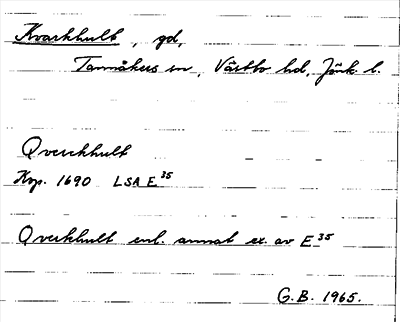 Kvarkhult, gd,
Tannåkers sn, Västbo hd, Jönk. l.
Qverckhult
Kop. 1690 LSA E 35
Qverkhult enl. annat ex. av E 35
G.B. 1965.